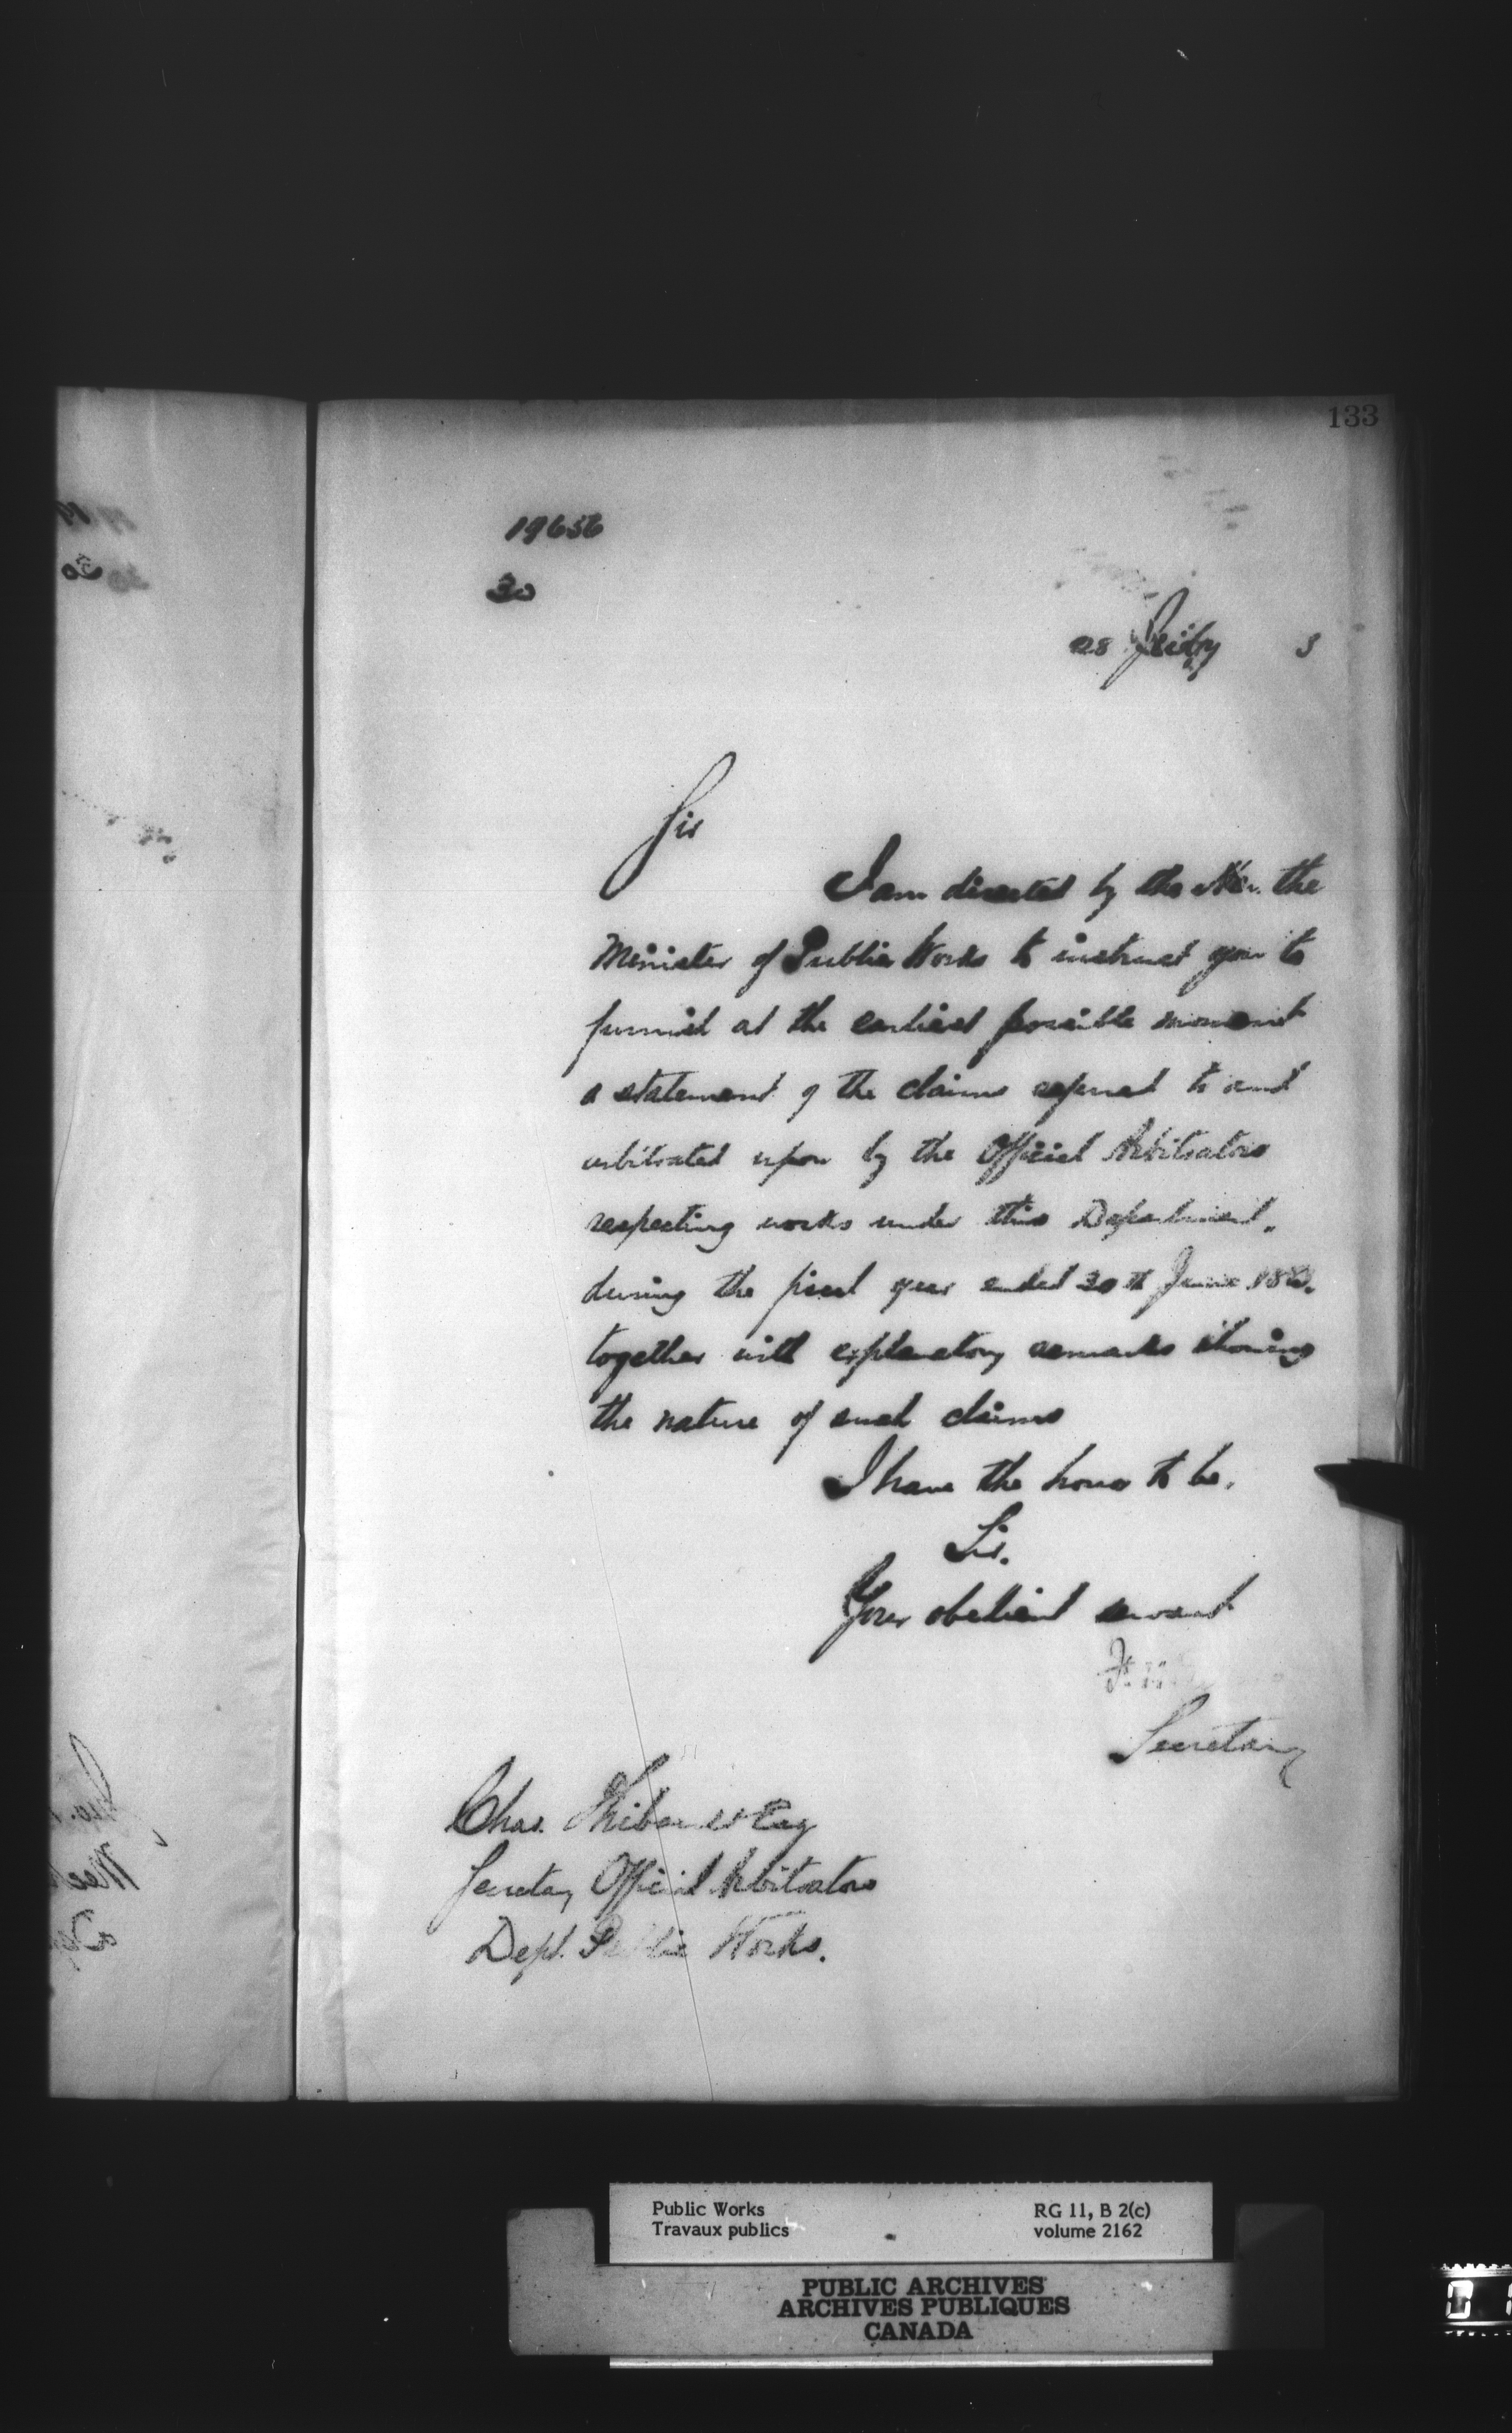 133
19656
30
28 July 3
Sir
I am directed by the Hon. the
Minister of Public Works to instruct you to
furnish at the earliest possible moment
a statement of the claims referred to and
arbitrated upon by the Official Arbitrators
respecting works under this Department,
during the fiscal year ended 30th June
together with explanatory remarks showing
the nature of such claims
I have the honor to be,
Sir.
Your obedient servant
Secretary
Chas. Thibault Esq
Secretary Official Arbitrators
Dept. Public Works.
Public Works
Travaux publics
RG 11, B 2(c)
volume 2162
PUBLIC ARCHIVES
ARCHIVES PUBLIQUES
CANADA